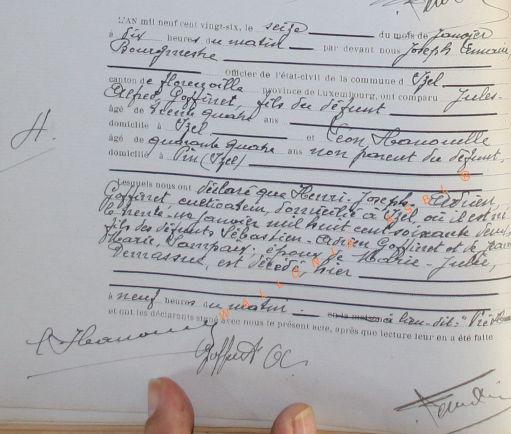 L'AN mil neuf cent vingt-six, le seize du mois de Janvier
à dix heures du matin par devant nous Joseph
Bourgmestre officier de l'état-civil de la commune d'Izel
canton de Florenville province de Luxembourg, ont comparu Jules-
Alfred Goffinet, fils du défunt
âgé de trente quatre ans
domicilié à Izel et Léon Hanouelle
âgé de quarante quatre ans non parent du défunt,
domicilié à Pin (Izel)
H.
Lesquels nous ont déclaré que Henri-Joseph-Adrien
Goffinet, cultivateur, domicilié à Izel, où il est né
le trente-un janvier mil huit cent soixante deux,
fils des défunts Sébastien-Adrien Goffinet et de Jeanne
Marie, Lampaix; époux de Marie-Julie,
est décédé hier
à neuf heures du matin en la maison à lieu-dit:
et ont les déclarants signé avec nous le présent acte, après que lecture leur en a été faite
L Hanouelle
Goffinet